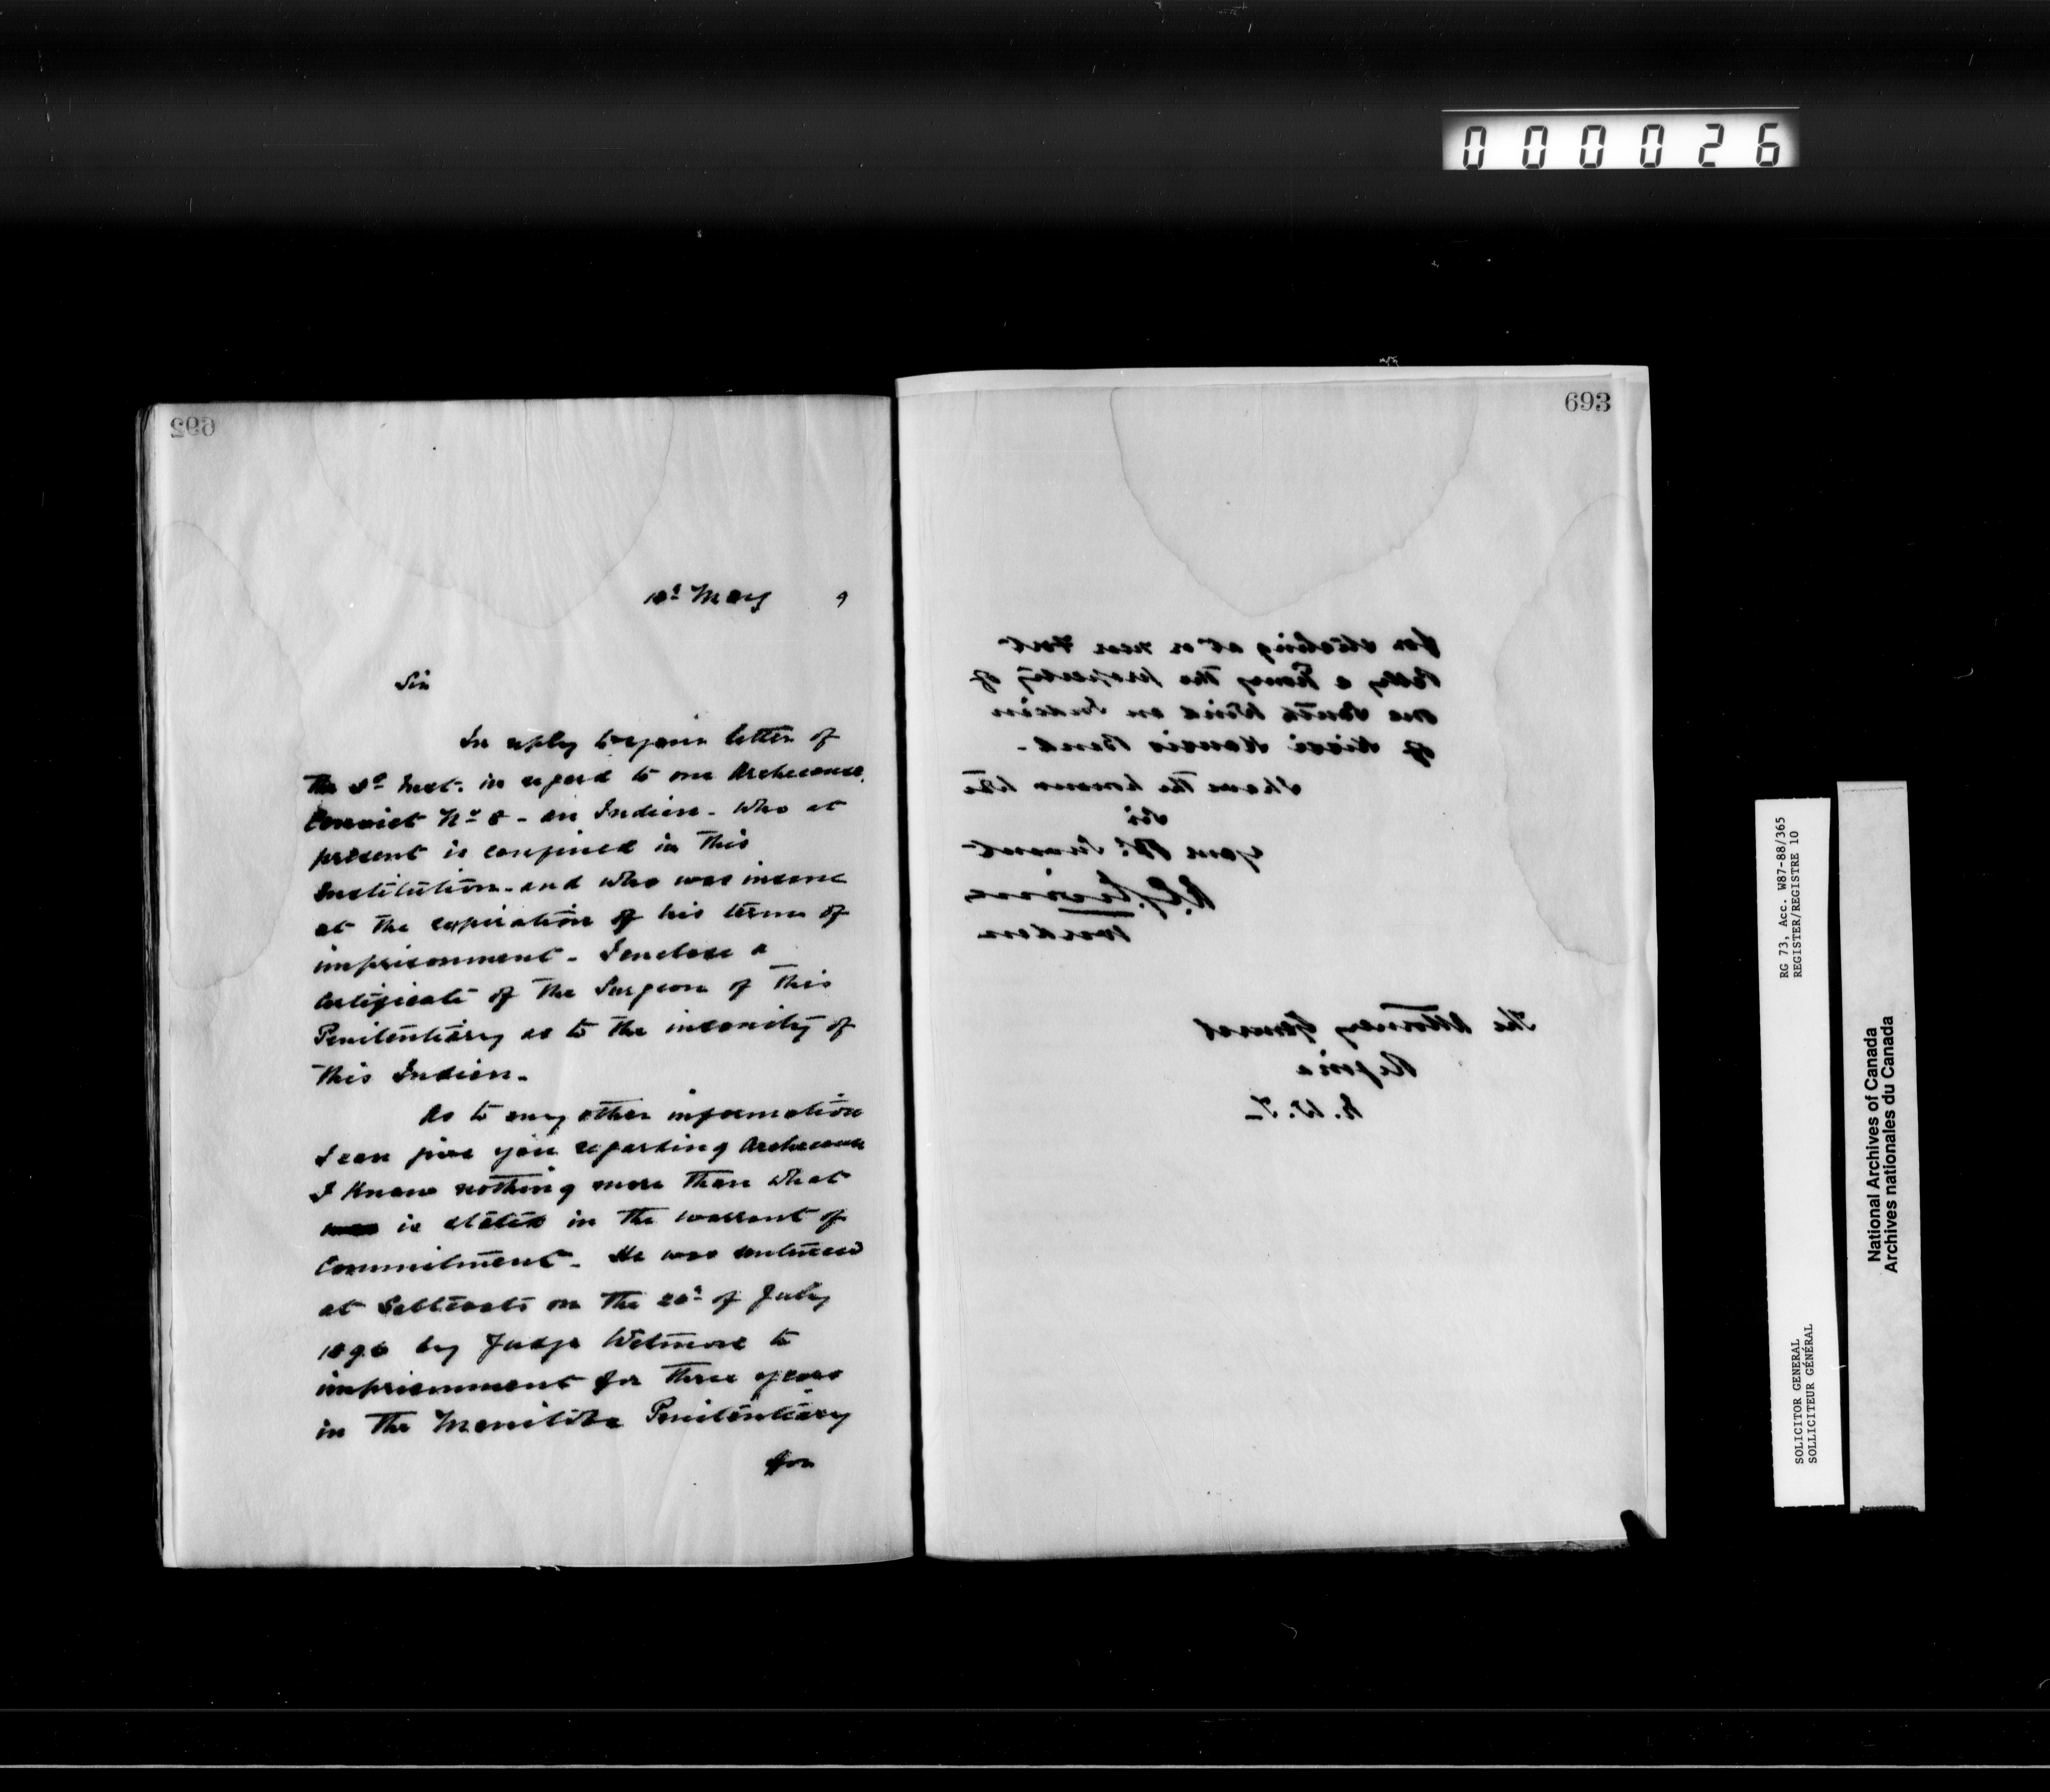 000026
692
10th May 9
Sir
In reply to your letter of
the 3d Inst. in regard to one Archecouse
Convict No 8 - an Indian - who at
present is confined in this
Institution - and who was insane
at the expiration of his term of
imprisonment - I enclose a
Certificate of the Surgeon of this
Penitentiary as to the insanity of
this Indian -
As to any other information
I can give you regarding Archecouse
I know nothing more than what
is stated in the warrant of
Commitment - He was sentenced
at Saltcoats on the 20th of July
1896 by Judge Wetmore to
imprisonment for three years
in the Manitoba Penitentiary
for
693
for stealing at or near Fort
Pelly a Pony the property of
one South Wind an Indian
of Band -
I have the honour to be
Sir
your Obt. Servant
A.G. Irvine
Warden
The Attorney General
Regina
N.W.T.
RG 73, Acc. W87-88/365
REGISTER/REGISTRE 10
SOLICITOR GENERAL
SOLLICITEUR GÉNÉRAL
National Archives of Canada
Archives nationales du Canada